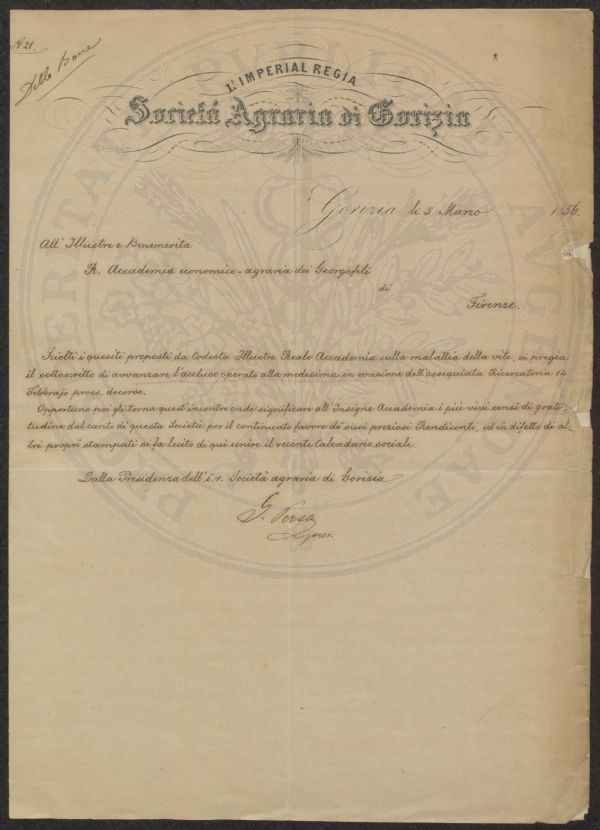 N. 21.
Della Bona
L'IMPERIAL REGIA
Società Agraria di Gorizia
Gorizia li 5 Marzo 1856.
All' Illustre e Benemerita
R. Accademia economico-agraria dei Georgofili
di
Firenze.
Sciolti i quesiti proposti da Codesta Illustre Reale Accademia sulla malattia della vite, si pregia
il sottoscritto di avvanzare l'accluso operato alla medesima in evasione dell'ossequiata Ricercatoria 14
Febbrajo pross. decorso.
Opportuno poi gli torna quest'incontro onde significare all'Insigne Accademia i più vivi sensi di grati-
tudine dal canto di questa Società per il continuato favore de' suoi preziosi Rendiconti, ed in difetto di al-
tri proprî stampati si fa lecito di qui unire il recente Calendario sociale.
Dalla Presidenza dell' i. r. Società agraria di Gorizia